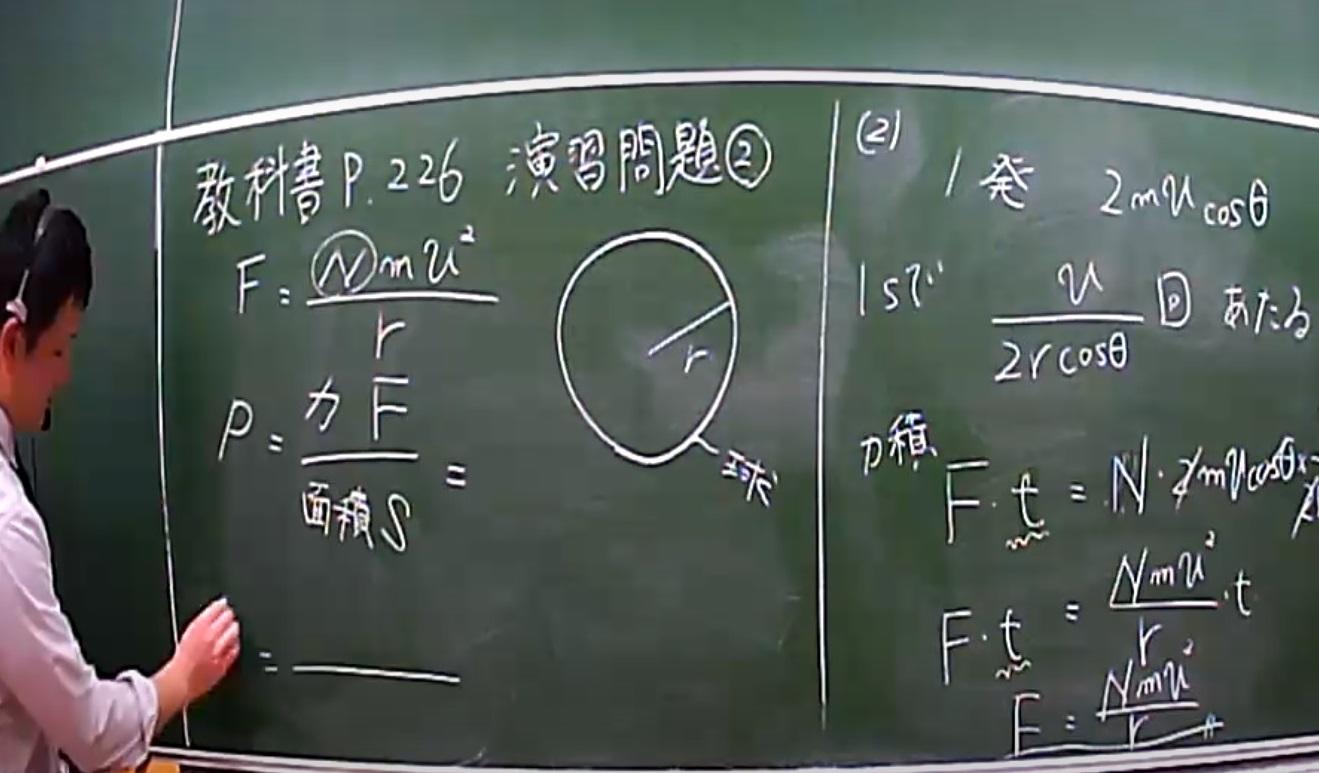 教科書P.226 演習問題②
F = Nmu²/r
P = 力F/面積S =
=
r
球
(2)
1発 2mu cosθ
1sで u/2r cosθ 回 あたる
力積
F・t = N・2mu cosθ×
F・t = Nmu²/r・t
F = Nmu²/r